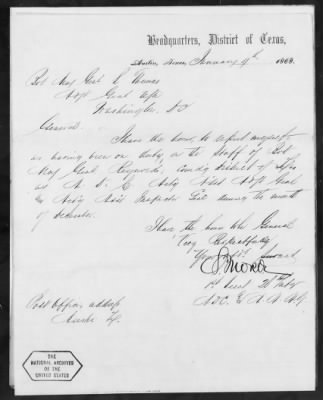 Headquarters, District of Texas,
Austin, Texas, January 9th 1868.
Bvt Maj Genl L Thomas
Adjt Genl USA
Washington, DC
General
I have the honor to report myself
as having been on duty, on the Staff of Bvt
Maj Genl Reynolds, Comdg District of Texas
as A. D. C. Actg Asst Adjt Genl
& Actg Asst Inspector Genl during the month
of December.
I have the honor to be General
Very Respectfully
Your Obt Servant
1st Lieut 26th Infy
ADC & A A A G
Post Office address
Austin Tx.
THE
NATIONAL ARCHIVES
OF THE
UNITED STATES